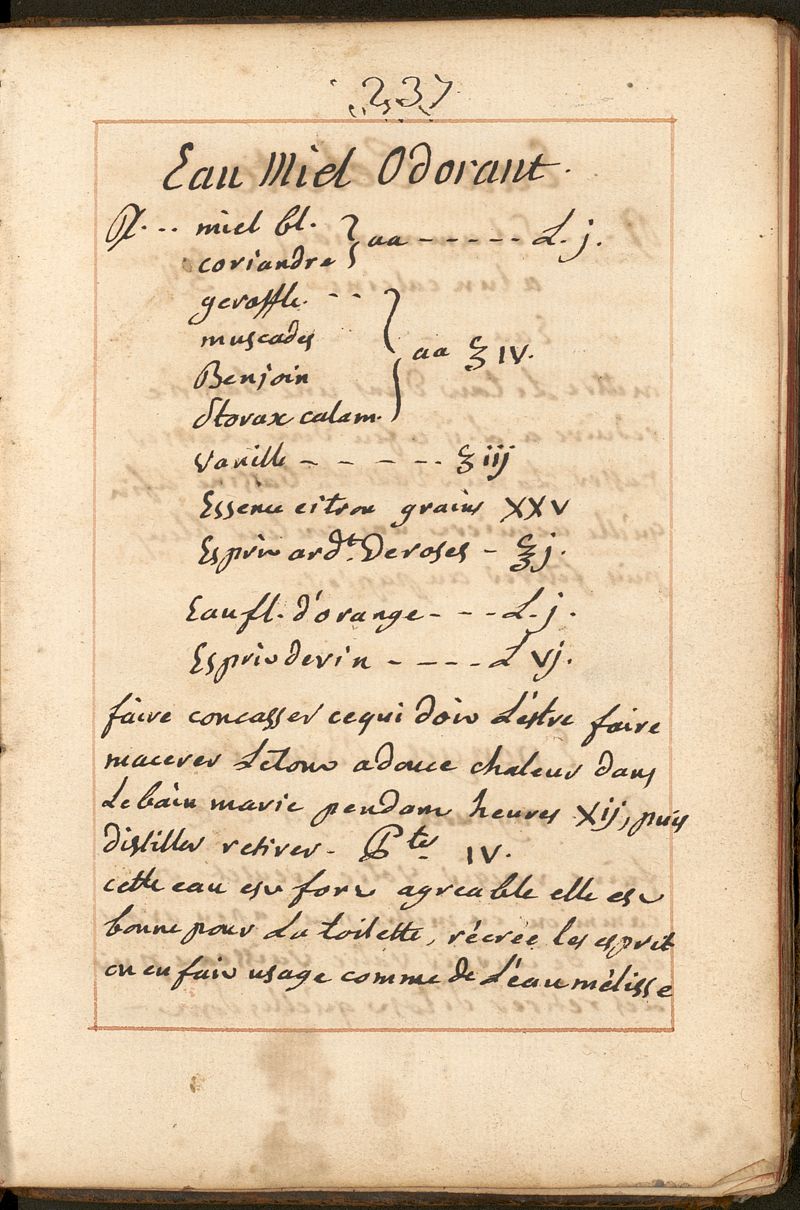 237
Eau Miel Odorant.
℞... miel bl.
coriandre } aa - - - - - L. j.
geroffle. - -
muscades
Benjoin } aa ℥ IV.
Storax calam.
Vanille - - - - - ℥ iij
Essence citron grains XXV
Esprit ardt. De roses - ℥ j.
Eau fl. d'orange - - - L. j.
Esprit de vin - - - - L Vj.
faire concasser ce qui doit L'estre faire
macerer Le tout a douce chaleur dans
Le bain marie pendant heures Xij, puis
distiller retirer. Ptes IV.
cette eau est fort agreable elle est
bonne pour La toilette, récrée les esprit
on en fait usage comme de L'eau mélisse